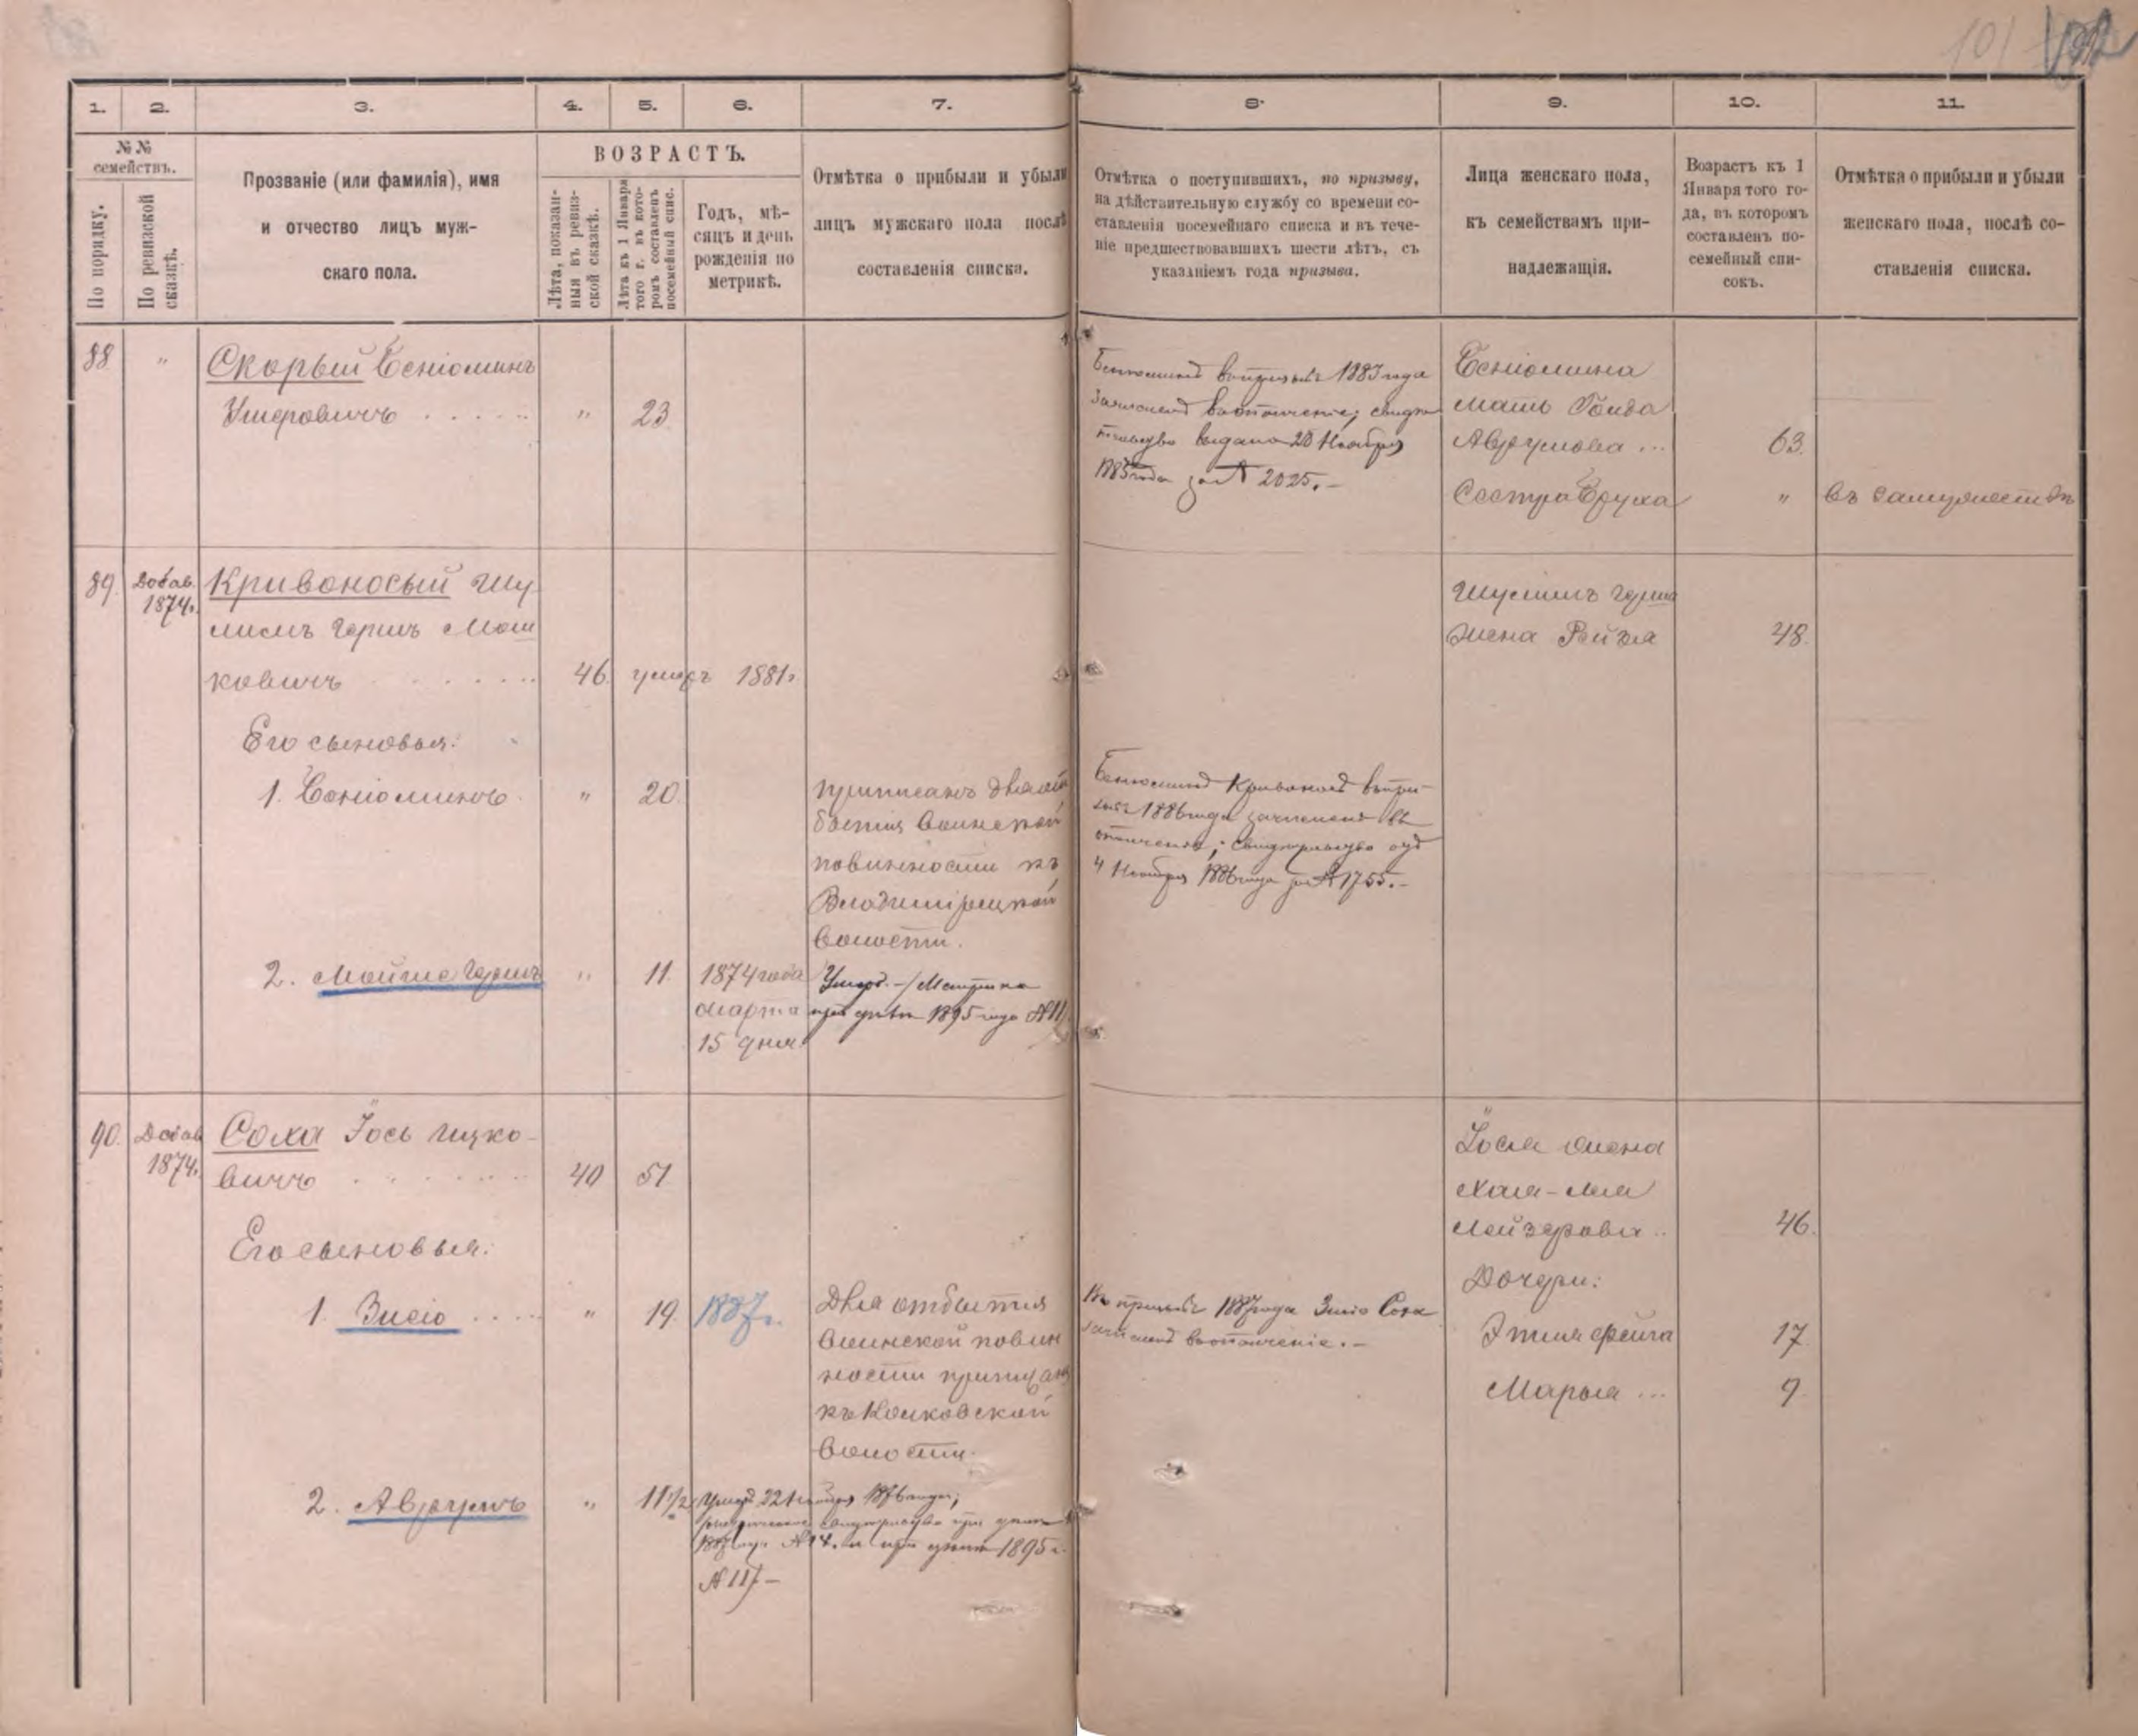 101
1.
2.
3.
4.
5.
6.
7.
8.
9.
10.
11.
№ №
семействъ.
По порядку.
По ревизской
сказкѣ.
Прозваніе (или фамилія), имя
и отчество лицъ муж-
скаго пола.
ВОЗРАСТЪ.
Лѣта, показан-
ныя въ ревиз-
ской сказкѣ.
Лѣта къ 1 Января
того г. въ кото-
ромъ составленъ
посемейный спис.
Годъ, мѣ-
сяцъ и день
рожденія по
метрикѣ.
Отмѣтка о прибыли и убыли
лицъ мужскаго пола послѣ
составленія списка.
Отмѣтка о поступившихъ, по призыву,
на дѣйствительную службу со времени со-
ставленія посемейнаго списка и въ тече-
ніе предшествовавшихъ шести лѣтъ, съ
указаніемъ года призыва.
Лица женскаго пола,
къ семействамъ при-
надлежащія.
Возрастъ къ 1
Января того го-
да, въ которомъ
составленъ по-
семейный спи-
сокъ.
Отмѣтка о прибыли и убыли
женскаго пола, послѣ со-
ставленія списка.
88
"
Скорый Беніоминъ
Умеровичъ . . . . . .
"
23
Беніоминъ въ призывѣ 1883 года
зачисленъ въ ополченіе; свидѣ
тельство выдано 28 Ноября
1883 года за № 2025.—
Беніомина
мать Гольда
Аврумова ...
63.
Сестра Бруха
"
въ замужествѣ
89.
Добав.
1874.
Кривоносый Шу
лимъ Гершъ Мош
ковичъ . . . . . .
46.
умеръ 1881г
Шулимъ Герша
жена Рейзля
48.
Его сыновья:
1. Беніоминъ.
"
20.
приписанъ для от
бытія воинской
повинности къ
Владимірецкой
волости.
Беніоминъ Кривонос въ при-
зывѣ 1886 года зачисленъ въ
ополченіе; свидѣтельство отъ
4 Ноября 1886 года за № 1755.—
2. Мойше Гершъ
"
11.
1874 года
Марта
15 дня.
Умеръ.—/Метрика
при дѣлѣ 1895 года № 11/.
90.
Добав
1874.
Соха Іось Ицко-
вичъ . . . . . .
40
51
Іося жена
Хая-Лея
Лейзерова ..
46.
Его сыновья:
1. Зисіо ....
"
19.
1887г.
Для отбытія
воинской повин
ности приписанъ
къ Колковской
волости.
Въ призывѣ 1887 года Зисіо Соха
зачисленъ въ ополченіе.—
Дочери:
Этля Фейга
17.
Марья ...
9.
2. Аврумъ
"
11½
Умеръ 22 Ноября 1876 года;
метрическое свидѣтельство при дѣлѣ
1887 года № 14. и при дѣлѣ 1895 г.
№ 11/—